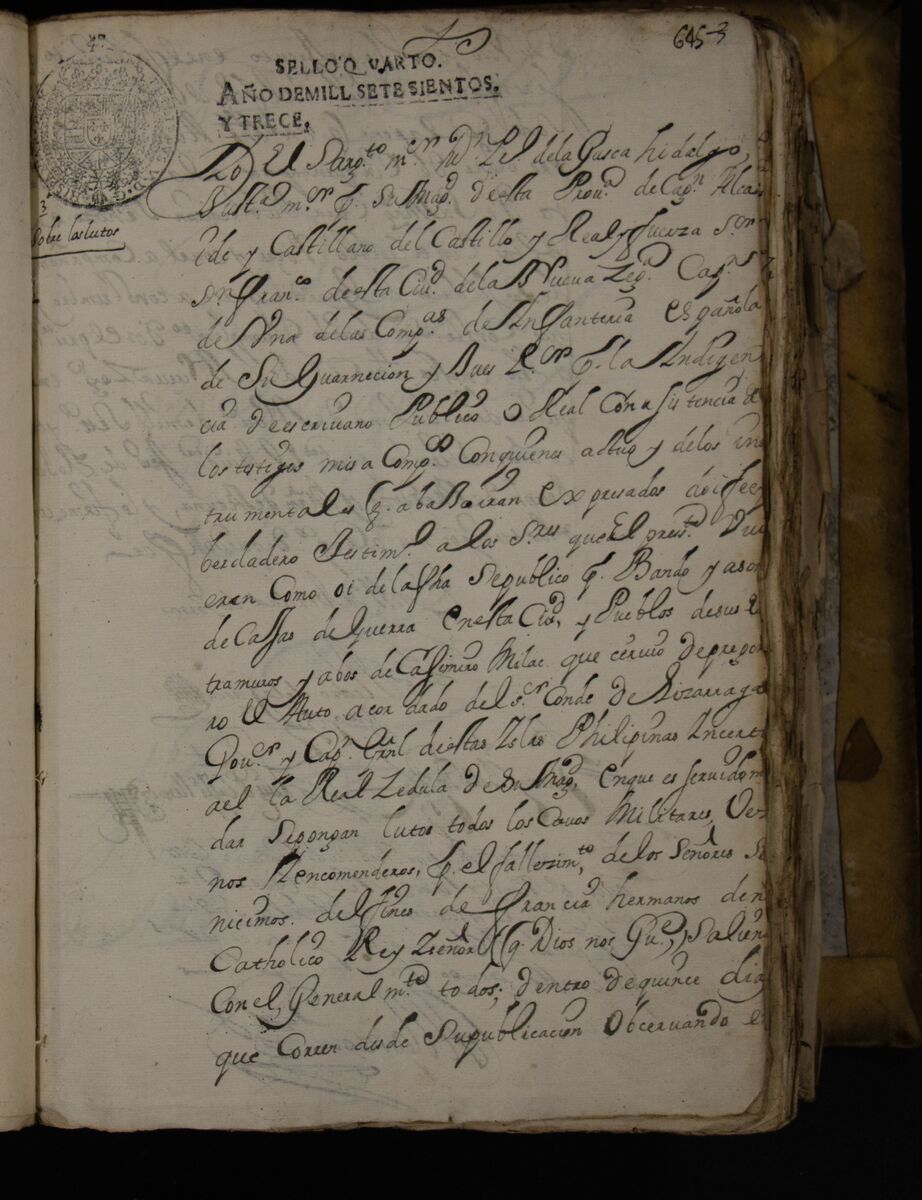 645-3
SELLO QVARTO.
AÑO DE MILL SETESIENTOS,
Y TRECE,
Sobre los lutos
Yo El Sarg.to m.or de la Guesca hidalgo,
Just.a m.or p. Su Mag.d desta Prou.a de Cag.n Alcai
ide y Castillano del Castillo y Real fuerza S.or
S.n Fran.co de esta Ciu.d de la Nueua Seg.a Cap.n
de Vna de las Comp.as de Infanteria española
de Su Guarnecion y Jues R.or p. la Indigen
cia de escriuano Publico o Real Con asistencia de
los testigos mis a Comp.dos Con quienes actuo y de los ins
trumentales q. abaxo iran expresados doi fee y
berdadero testim.o a los S.res que el press.te Vie
eren Como oi de la fha Se publico p. Bando y a son
de Cassas de Guerra en esta Ciu.d, y Pueblos de sus ex
tramuros y a bos de Casimiro Milac que ceruio de pregone
ro El Auto acordado del S.or Conde de Lizarraga
Gou.or y Cap.n Grnl de estas Islas Philipinas Incerto
a el la Real Zedula de Su Mag.d, en que es seruido man
dar se pongan lutos todos los Cauos Militares, Vezi
nos Y encomenderos, p. el fallezim.to, de los Señores Se
nicimos. delfines de Francia hermanos de n
Catholico Rey y Señor (q. Dios nos Gu.e,) Salien
Con el, General m.te todos; dentro de quince dias
que Corren desde Su publicacion Obceruando e